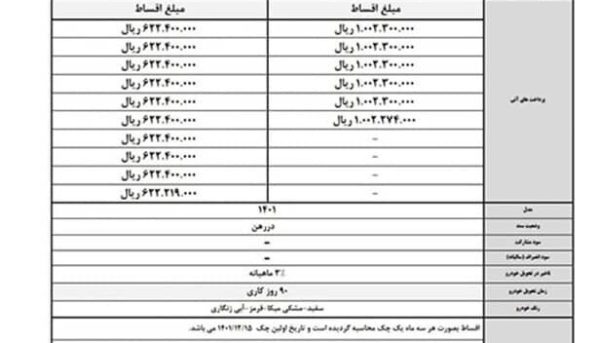 مبلغ اقساط	مبلغ اقساط
پرداخت های آتی
۱.۰۰۲.۳۰۰.۰۰۰ ریال	۶۲۲.۴۰۰.۰۰۰ ریال
۱.۰۰۲.۳۰۰.۰۰۰ ریال	۶۲۲.۴۰۰.۰۰۰ ریال
۱.۰۰۲.۳۰۰.۰۰۰ ریال	۶۲۲.۴۰۰.۰۰۰ ریال
۱.۰۰۲.۳۰۰.۰۰۰ ریال	۶۲۲.۴۰۰.۰۰۰ ریال
۱.۰۰۲.۳۰۰.۰۰۰ ریال	۶۲۲.۴۰۰.۰۰۰ ریال
۱.۰۰۲.۲۷۴.۰۰۰ ریال	۶۲۲.۴۰۰.۰۰۰ ریال
-	۶۲۲.۴۰۰.۰۰۰ ریال
-	۶۲۲.۴۰۰.۰۰۰ ریال
-	۶۲۲.۴۰۰.۰۰۰ ریال
-	۶۲۲.۲۱۹.۰۰۰ ریال
مدل	۱۴۰۱
وضعیت سند	دررهن
سود مشارکت	-
سود انصراف (سالیانه)	-
تاخیر در تحویل خودرو	۳٪ ماهیانه
زمان تحویل خودرو	۹۰ روز کاری
رنگ خودرو	سفید-مشکی میکا-قرمز-آبی زنگاری
اقساط بصورت هر سه ماه یک چک محاسبه گردیده است و تاریخ اولین چک ۱۴۰۱/۱۲/۱۵ می باشد.